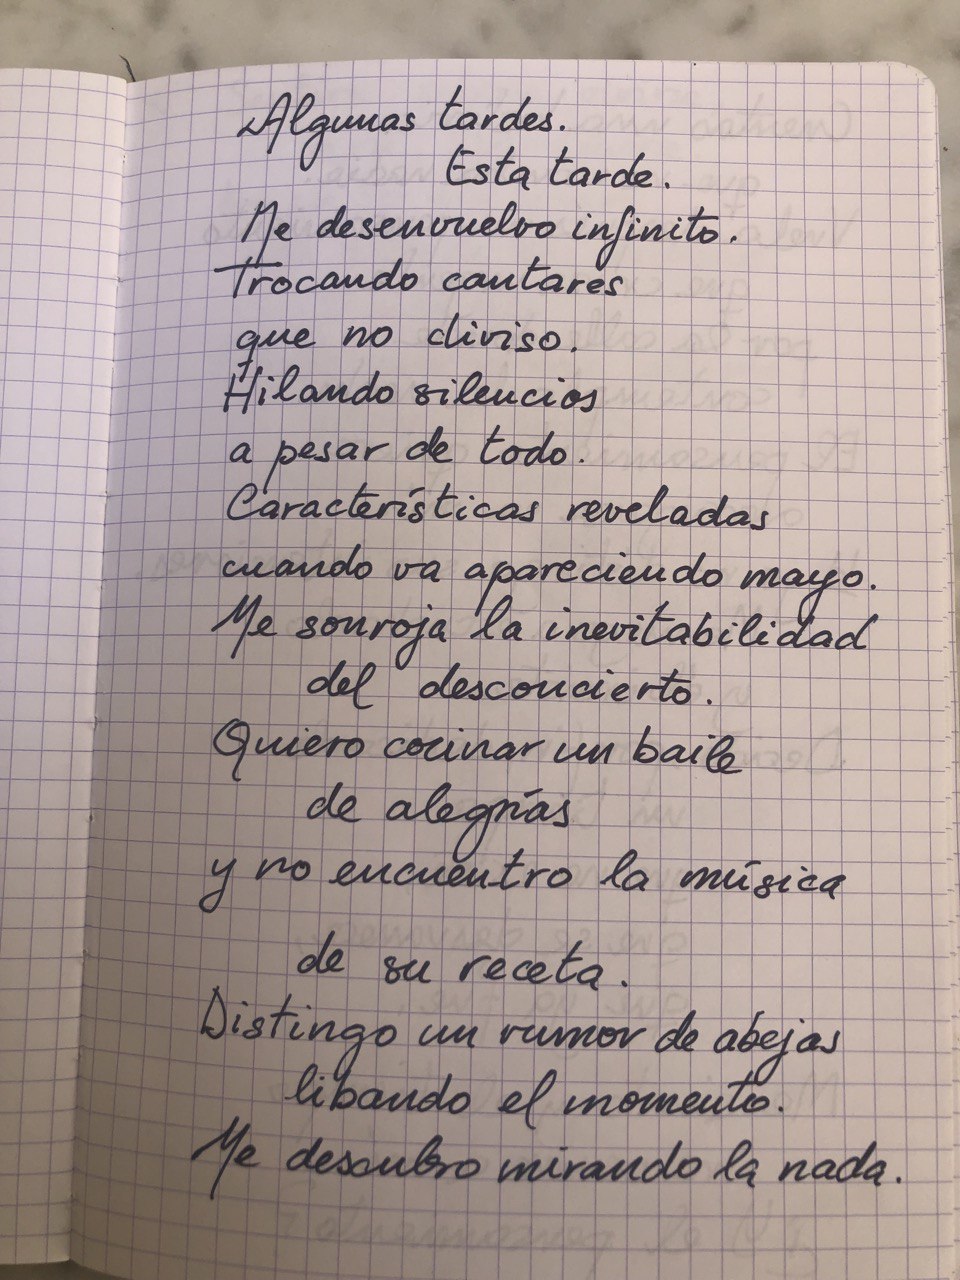 Algunas tardes.
Esta tarde.
Me desenvuelvo infinito.
Trocando cantares
que no diviso.
Hilando silencios
a pesar de todo.
Características reveladas
cuando va apareciendo mayo.
Me sonroja la inevitabilidad
del desconcierto.
Quiero cocinar un baile
de alegrías
y no encuentro la música
de su receta.
Distingo un rumor de abejas
libando el momento.
Me descubro mirando la nada.